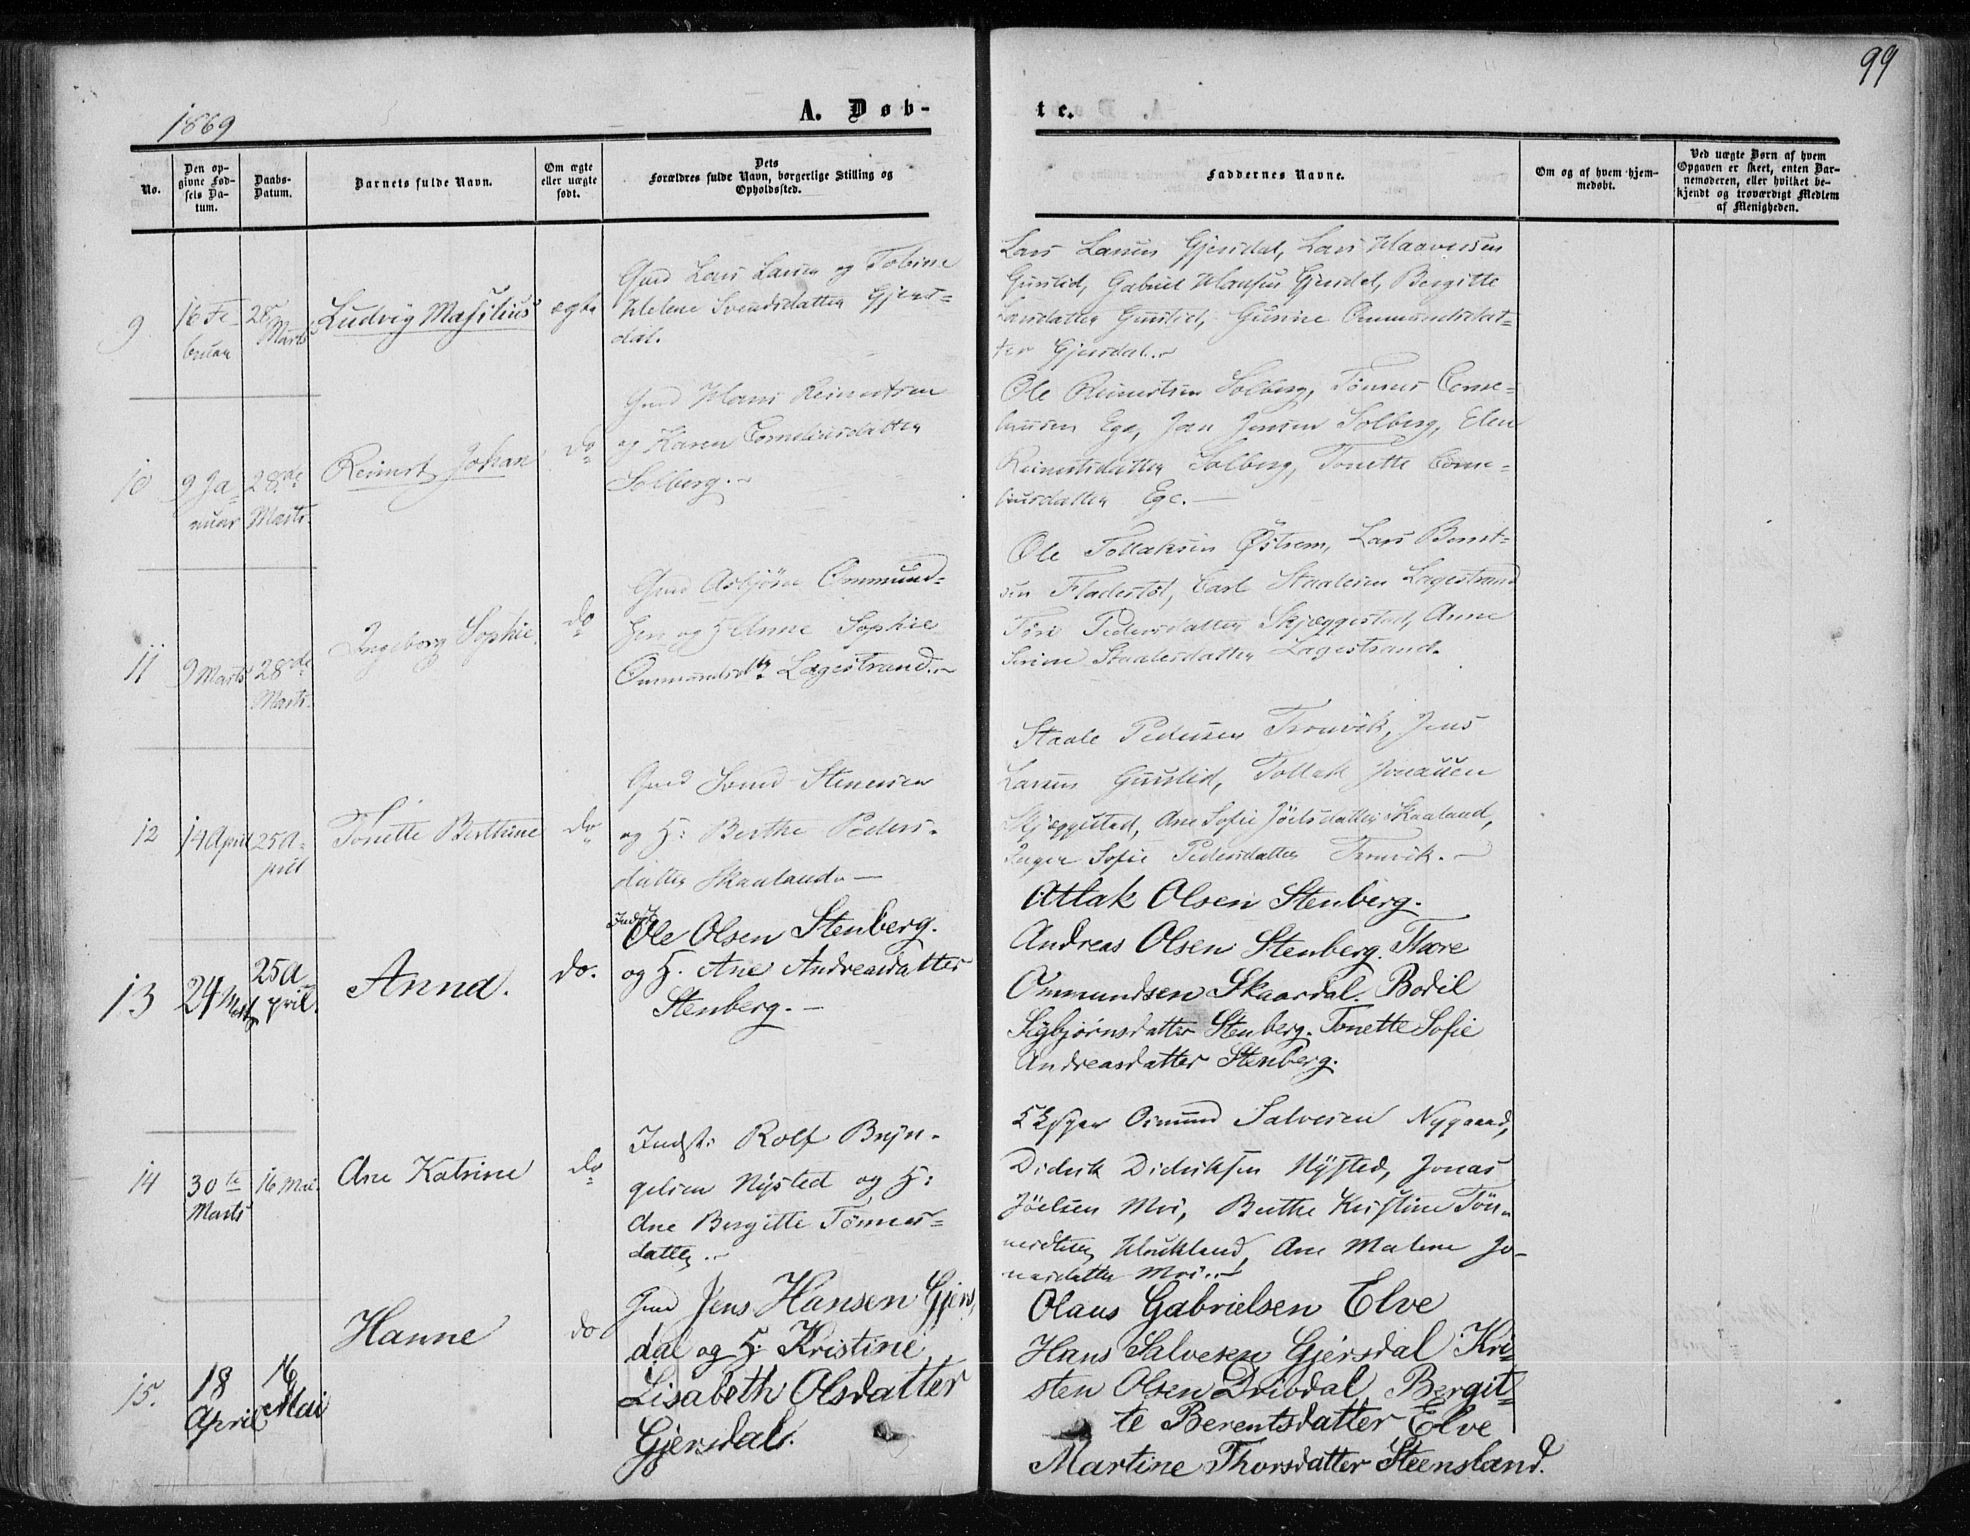 99
1869
A. Døb-
te.
No.
Den op-
givne Fød-
sels Da-
tum.
Daabs-
Datum.
Barnets fulde Navn.
Om ægte
eller uægte
født.
Dets
Forældres fulde Navn, borgerlige Stilling og
Opholdssted.
Faddernes Navne.
Om og af hvem hjem-
medøbt.
Ved uægte Børn af hvem
Opgaven er skeet, enten Bar-
nemoderen, eller hvilket be-
kjendt og troværdigt Medlem
af Menigheden.
9
16 Fe-
bruar
25
Marts
Ludvig Masilius
ægte
Gmd Lars Larsen og Tobine
Helene Svendsdatter Gjers-
dal.
Lars Larsen Gjersdal, Lars Haaversen
Gunstid, Gabriel Hansen Gjersdal, Bergitte
Larsdatter Gunstid, Gunine Ommundsdat-
ter Gjersdal.
10
9 Ja-
nuar
28de
Marts.
Reinert Johan
do
Gmd Hans Reinertsen
og Karen Corneliusdatter
Solberg.
Ole Reinertsen Solberg, Tønnes Corne-
liussen Ege, Jan Jensen Solberg, Elen
Reinertsdatter Solberg, Tonette Corne-
liusdatter Ege.
11
9 Marts
28de
Marts.
Ingeborg Sophie.
do
Gmd Asbjørn Ommund-
sen og H Anne Sophie
Ommundsdtr Lagestrand.
Ole Tollaksen Østrem, Lars Berent-
sen Fladestøl, Carl Staalesen Lagestrand
Tøri Pedersdatter Skjæggestad, Anne
Serine Staalesdatter Lagestrand.
12
14 April
25 A-
pril
Tonette Berthine
do
Gmd Svend Stenersen
og H: Berthe Peders-
datter Skaaland.
Staale Pedersen Tronvik, Jens
Larsen Gunstid, Tollak Jonassen
Skjæggestad, Ane Sofie Joelsdatter Skaaland,
Inger Sofie Pedersdatter Tronvik.
13
24 Marts
25 A-
pril.
Anna.
do.
Indst
Ole Olsen Stenberg.
og H. Ane Andreasdatter
Stenberg.
Atlak Olsen Stenberg.
Andreas Olsen Stenberg. Thore
Ommundsen Skaardal. Bodil
Sigbjørnsdatter Stenberg. Tonette Sofie
Andreasdatter Stenberg.
14
30te
Marts
16 Mai.
Ane Katrine
do
Indst: Rolf Bryn-
gelsen Nysted og H:
Ane Bergitte Tønnes-
datter.
Osmund Salvesen Nygaard,
Didrik Didriksen Nysted, Jonas
Joelsen Moi, Berthe Kristine Tøn-
nesdatter Houkland, Ane Malene Jo-
nasdatter Moi.
15.
18
April
16
Mai
Hanne
do
Gmd Jens Hansen Gjers
dal og H: Kristine
Lisabeth Olsdatter
Gjersdal.
Olaus Gabrielsen Elve
Hans Salvesen Gjersdal Kri-
sten Olsen Dribdal Bergit-
te Berentsdatter Elve
Martine Thorsdatter Steensland.